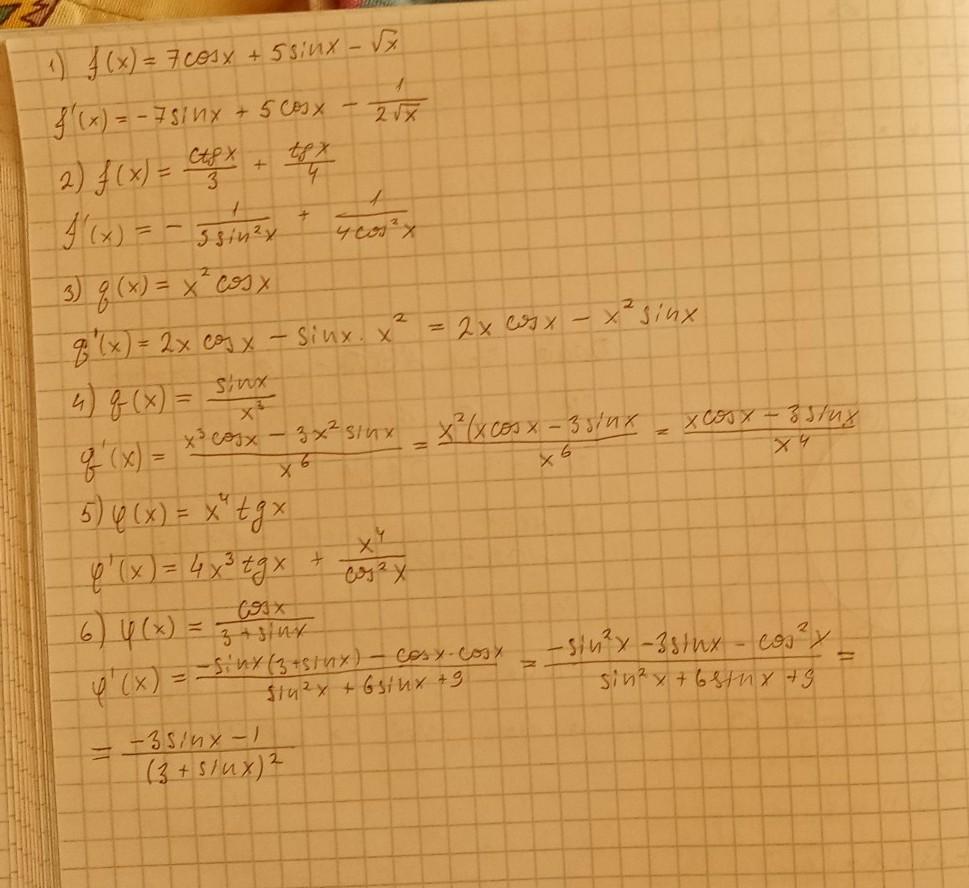 1) f(x) = 7cosx + 5sinx - √x
f'(x) = -7sinx + 5cosx - 1/(2√x)
2) f(x) = ctgx/3 + tgx/4
f'(x) = - 1/(3sin²x) + 1/(4cos²x)
3) g(x) = x² cosx
g'(x) = 2x cosx - sinx · x² = 2x cosx - x² sinx
4) g(x) = sinx/x³
g'(x) = (x³cosx - 3x² sinx)/x⁶ = x²(xcosx - 3sinx/x⁶ = (xcosx - 3sinx)/x⁴
5) φ(x) = x⁴ tgx
φ'(x) = 4x³ tgx + x⁴/cos²x
6) φ(x) = cosx/(3+sinx)
φ'(x) = (-sinx(3+sinx) - cosx·cosx)/(sin²x + 6sinx + 9) = (-sin²x - 3sinx - cos²x)/(sin²x + 6sinx + 9) =
= (-3sinx - 1)/(3 + sinx)²